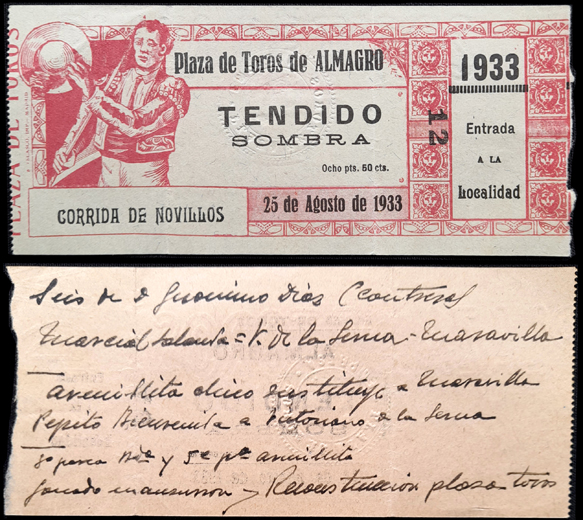 PLAZA DE TOROS
Plaza de Toros de ALMAGRO
TENDIDO
SOMBRA
Ocho pts. 50 cts.
CORRIDA DE NOVILLOS
25 de Agosto de 1933
12
1933
Entrada
A LA
Localidad
Seis de D Geronimo Dias (Contreras)
Marcial Lalanda = V. de la Serna - Maravilla
Armillita chico sustituye a Maravilla
Pepito Bienvenida a Victoriano de la Serna
3º y 5º armillita
Ganado mansurron y Reconstruccion plaza toros